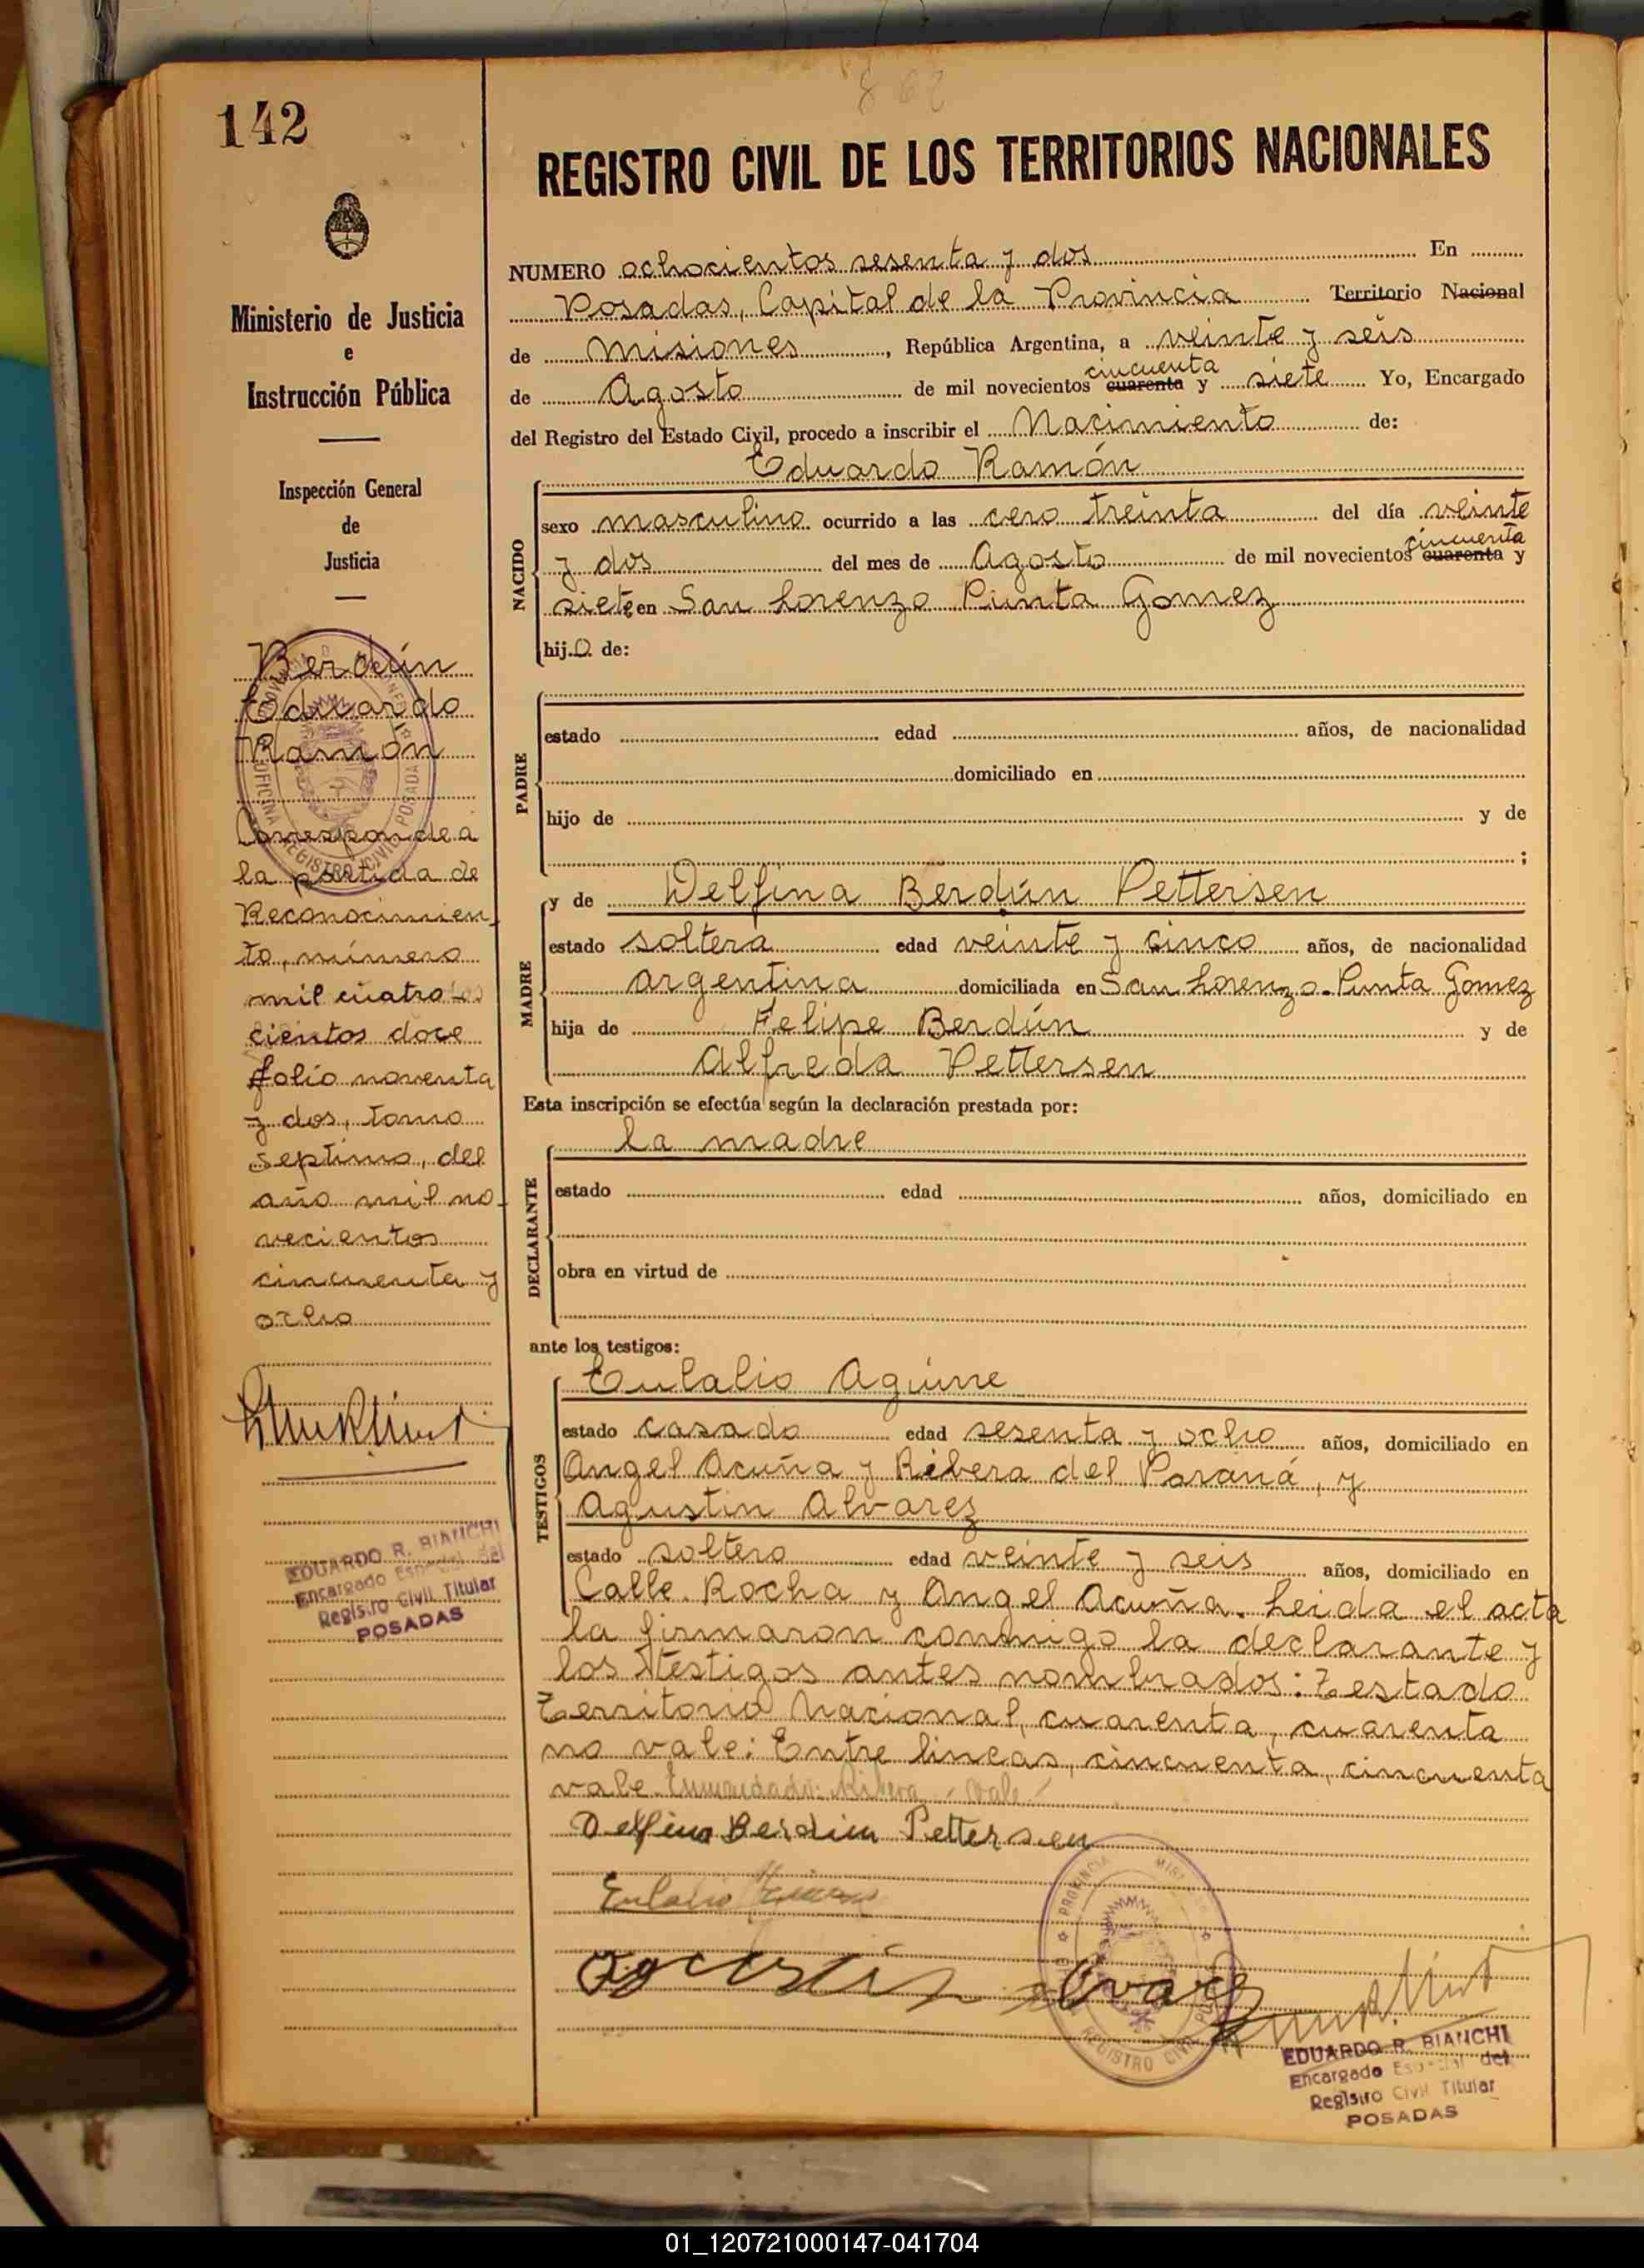 862
142
REGISTRO CIVIL DE LOS TERRITORIOS NACIONALES
Ministerio de Justicia
e
Instrucción Pública
Inspección General
de
Justicia
Berdún
Eduardo
Ramón
Corresponde a
la partida de
Reconocimien-
to, número
mil cuatro
cientos doce
folio noventa
y dos, tomo
septimo, del
año mil no-
vecientos
cincuenta y
ocho
EDUARDO R. BIANCHI
Encargado Especial del
Registro Civil Titular
POSADAS
NUMERO ochocientos sesenta y dos En
Posadas, Capital de la Provincia Territorio Nacional
de Misiones, República Argentina, a veinte y seis
cincuenta
de Agosto de mil novecientos cuarenta y siete Yo, Encargado
del Registro del Estado Civil, procedo a inscribir el Nacimiento de:
Eduardo Ramón
NACIDO
sexo masculino ocurrido a las cero treinta del día veinte
cincuenta
y dos del mes de Agosto de mil novecientos cuarenta y
siete en San Lorenzo Punta Gomez
hijo de:
PADRE
estado edad años, de nacionalidad
domiciliado en
hijo de y de
;
MADRE
y de Delfina Berdún Pettersen
estado soltera edad veinte y cinco años, de nacionalidad
argentina domiciliada en San Lorenzo-Punta Gomez
hija de Felipe Berdún y de
Alfreda Pettersen
Esta inscripción se efectúa según la declaración prestada por:
DECLARANTE
la madre
estado edad años, domiciliado en
obra en virtud de
ante los testigos:
TESTIGOS
Eulalio Aguirre
estado casado edad sesenta y ocho años, domiciliado en
Angel Acuña y Ribera del Paraná, y
Agustin Alvarez
estado soltero edad veinte y seis años, domiciliado en
Calle Rocha y Angel Acuña. Leida el acta
la firmaron conmigo la declarante y
los testigos antes nombrados: Testado
Territorio Nacional, cuarenta, cuarenta
no vale: Entre lineas, cincuenta, cincuenta
vale. Enmendado: Ribera - vale -
Delfina Berdún Pettersen
Eulalio
Agustin Alvarez
PROVINCIA
REGISTRO CIVIL
EDUARDO R. BIANCHI
Encargado Especial del
Registro Civil Titular
POSADAS
01_120721000147-041704